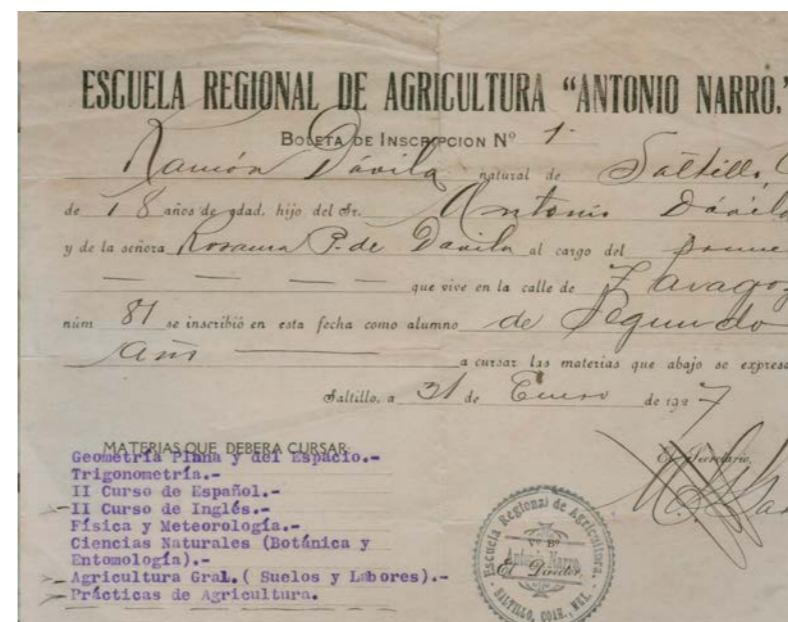 ESCUELA REGIONAL DE AGRICULTURA "ANTONIO NARRO."
BOLETA DE INSCRIPCION Nº 1.
Ramón Dávila natural de Saltillo, C
de 18 años de edad, hijo del Sr. Antonio Dávila
y de la señora Rosaura P. de Davila al cargo del prime
que vive en la calle de Zaragoz
núm 81 se inscribió en esta fecha como alumno de Segundo
Año a cursar las materias que abajo se expresa
Saltillo, a 31 de Enero de 1927
MATERIAS QUE DEBERA CURSAR:
Geometría Plana y del Espacio.-
Trigonometría.-
II Curso de Español.-
II Curso de Inglés.-
Física y Meteorología.-
Ciencias Naturales (Botánica y
Entomología).-
Agricultura Gral.( Suelos y Labores).-
Prácticas de Agricultura.
El Secretario,
Escuela Regional de Agricultura.
Vº Bº
Antonio Narro
El Director,
SALTILLO, COAH., MEX.